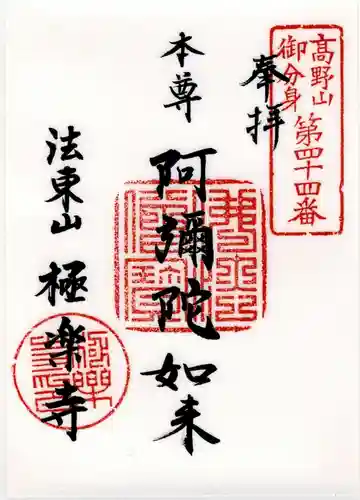 髙野山
御分身
第四十四番
奉拝
本尊
阿彌陀如来
法東山
極楽寺